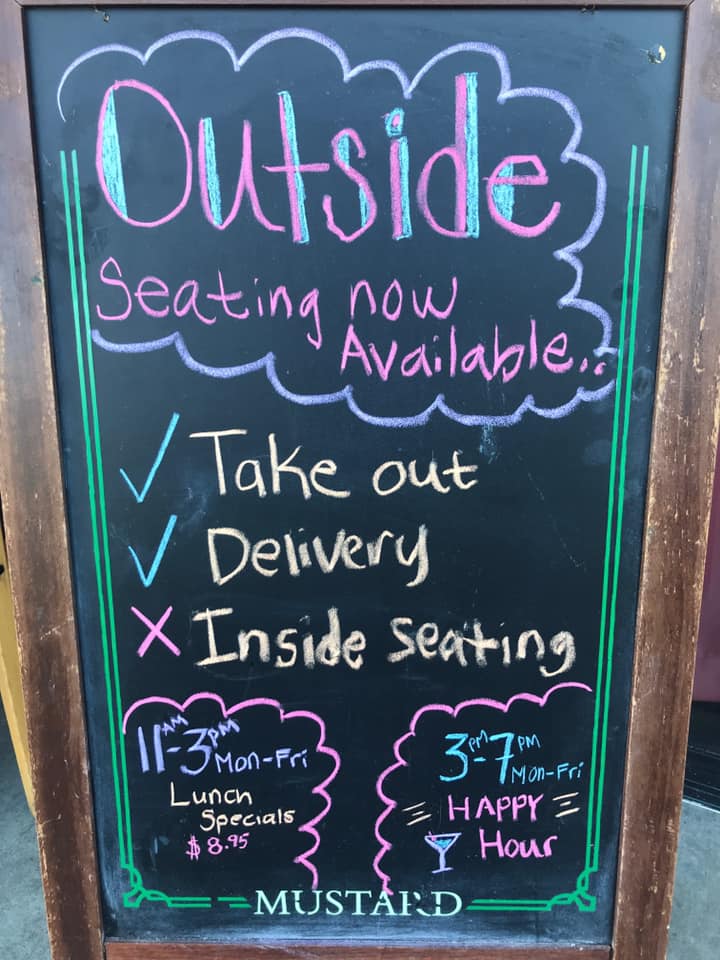 Outside
Seating now
Available..
✓ Take out
✓ Delivery
× Inside seating
11AM-3PM
Mon-Fri
Lunch
Specials
$8.95
3pm-7pm
Mon-Fri
HAPPY
Hour
MUSTARD